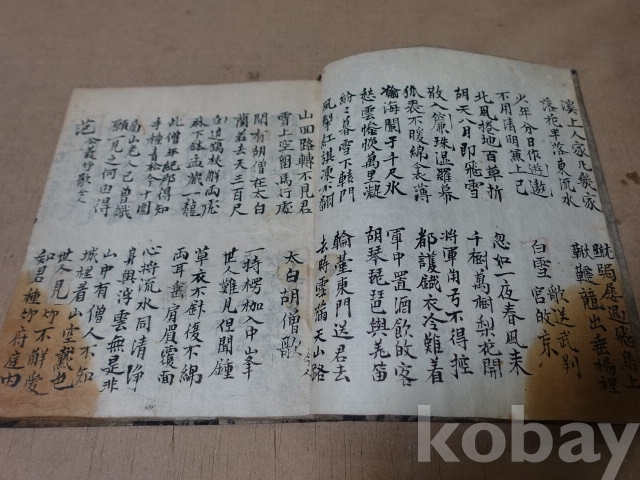 溪上人家凡幾家
落花半落東流水
蹴踘屢過飛鳥上
鞦韆競出垂楊裡
少年分日作遨遊
不用清明兼上巳
白雪歌送武判官歸京
北風捲地百草折
胡天八月即飛雪
忽如一夜春風來
千樹萬樹梨花開
散入簾珠濕羅幕
狐裘不暖錦衾薄
將軍角弓不得控
都護鐵衣冷難着
瀚海闌干千尺氷
愁雲慘憺萬里凝
軍中置酒飲歸客
胡琴琵琶與羌笛
紛紛暮雪下轅門
風掣紅旗凍不翻
輪臺東門送君去
去時雪滿天山路
山回路轉不見君
雪上空留馬行處
太白胡僧歌
聞有胡僧在太白
蘭若去天三百尺
一持楞枷入中峯
世人難見但聞鍾
窓邊錫杖解兩虎
床下鉢盂藏一龍
草衣不針復不綿
兩耳垂肩眉覆面
此僧年紀那得知
手種青松今十圍
心將流水同清淨
身與浮雲無是非
商山老人已曾識
願一見之何由得
山中有僧人不知
城裡看山空
范公叢竹歌
世人見竹不解愛
知君種竹府庭内
kobay